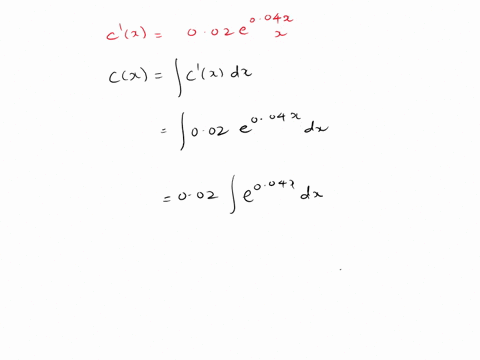 c'(x) = 0.02 e^0.04x x
C(x) = ∫ c'(x) dx
= ∫ 0.02 e^0.04x dx
= 0.02 ∫ e^0.04x dx